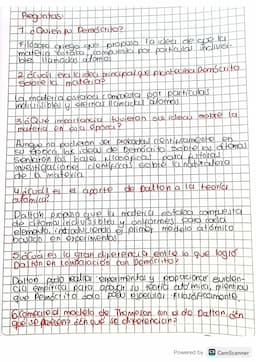 Preguntas:
1. ¿Quien fue Demócrito?
Filósofo griego que propuso la idea de que la
materia estaba compuesta por particulas indivisi-
bles llamadas atomos
2. ¿Cuál era la idea principal que planteaba Demócrito
sobre la materia?
La materia estaba compuesta por particulas
indivisibles y eternas llamadas atomos
3. ¿Qué importancia tuvieron sus ideas sobre la
materia en esa época?
Aunque no pudieron ser probadas cientificamente en
su época, las ideas de Demócrito sobre los atomos
sentaron las bases filosóficas para futuras
investigaciones cientificas sobre la naturaleza
de la materia
4. ¿Cuál es el aporte de Dalton a la teoria
atómica?
Dalton propuso que la materia estaba compuesta
de atomos indivisibles y uniformes para cada
elemento, introduciendo el primer modelo atómico
basado en experimentos
5. ¿Cuál es la gran diferencia entre lo que logró
Dalton en comparación con Demócrito?
Dalton pudo realizar experimentos y proporcionar eviden-
cia empirica para apoyar su teoria atómica, mientras
que Demócrito solo pudo especular filosóficamente.
6. Compare el modelo de Thompson con el de Dalton. ¿En
qué se parecen? ¿En qué se diferencian?
Powered by CS CamScanner